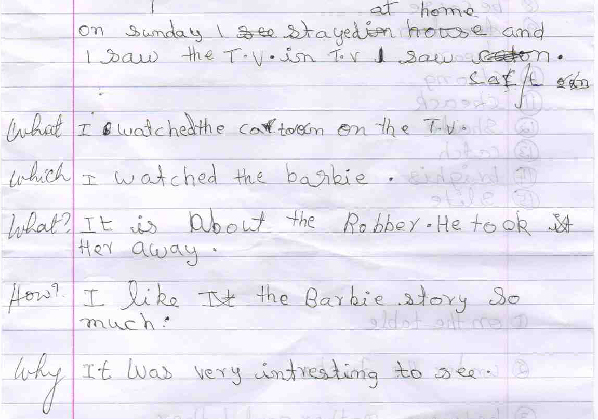 at home
on sunday I see stayed in house and
I saw the T.V. in T.V I saw
What I watched the cartoon on the T.V.
which I watched the barbie .
What? It is About the Robber. He took it
Her away .
How? I like It the Barbie story So
much.
Why It Was very intresting to see.